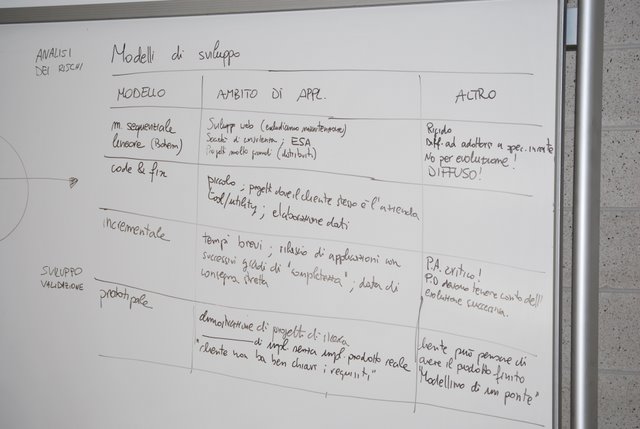 ANALISI
DEI RISCHI
Modelli di sviluppo
MODELLO
AMBITO DI APPL.
ALTRO
m. sequenziale
lineare (Bohem)
Sviluppo web (escludiamo manutenzione)
Società di consulenza; ESA
Progetti molto grandi (distribuiti)
Rigido
Diff. ad adattarsi a spec. incerte
No per evoluzione!
DIFFUSO!
code & fix
piccolo; progetti dove il cliente stesso è l'azienda
tool/utility; elaborazione dati
incrementale
tempi brevi; rilascio di applicazioni con
successivi gradi di "completezza"; data di
consegna stretta
P.A. critico!
P.D devono tenere conto dell'
evoluzione successiva.
SVILUPPO
VALIDAZIONE
prototipale
dimostrazione di progetti di ricerca
di impl. senza impl prodotto reale
"cliente non ha ben chiari i requisiti"
cliente può pensare di
avere il prodotto finito
"Modellino di un ponte"